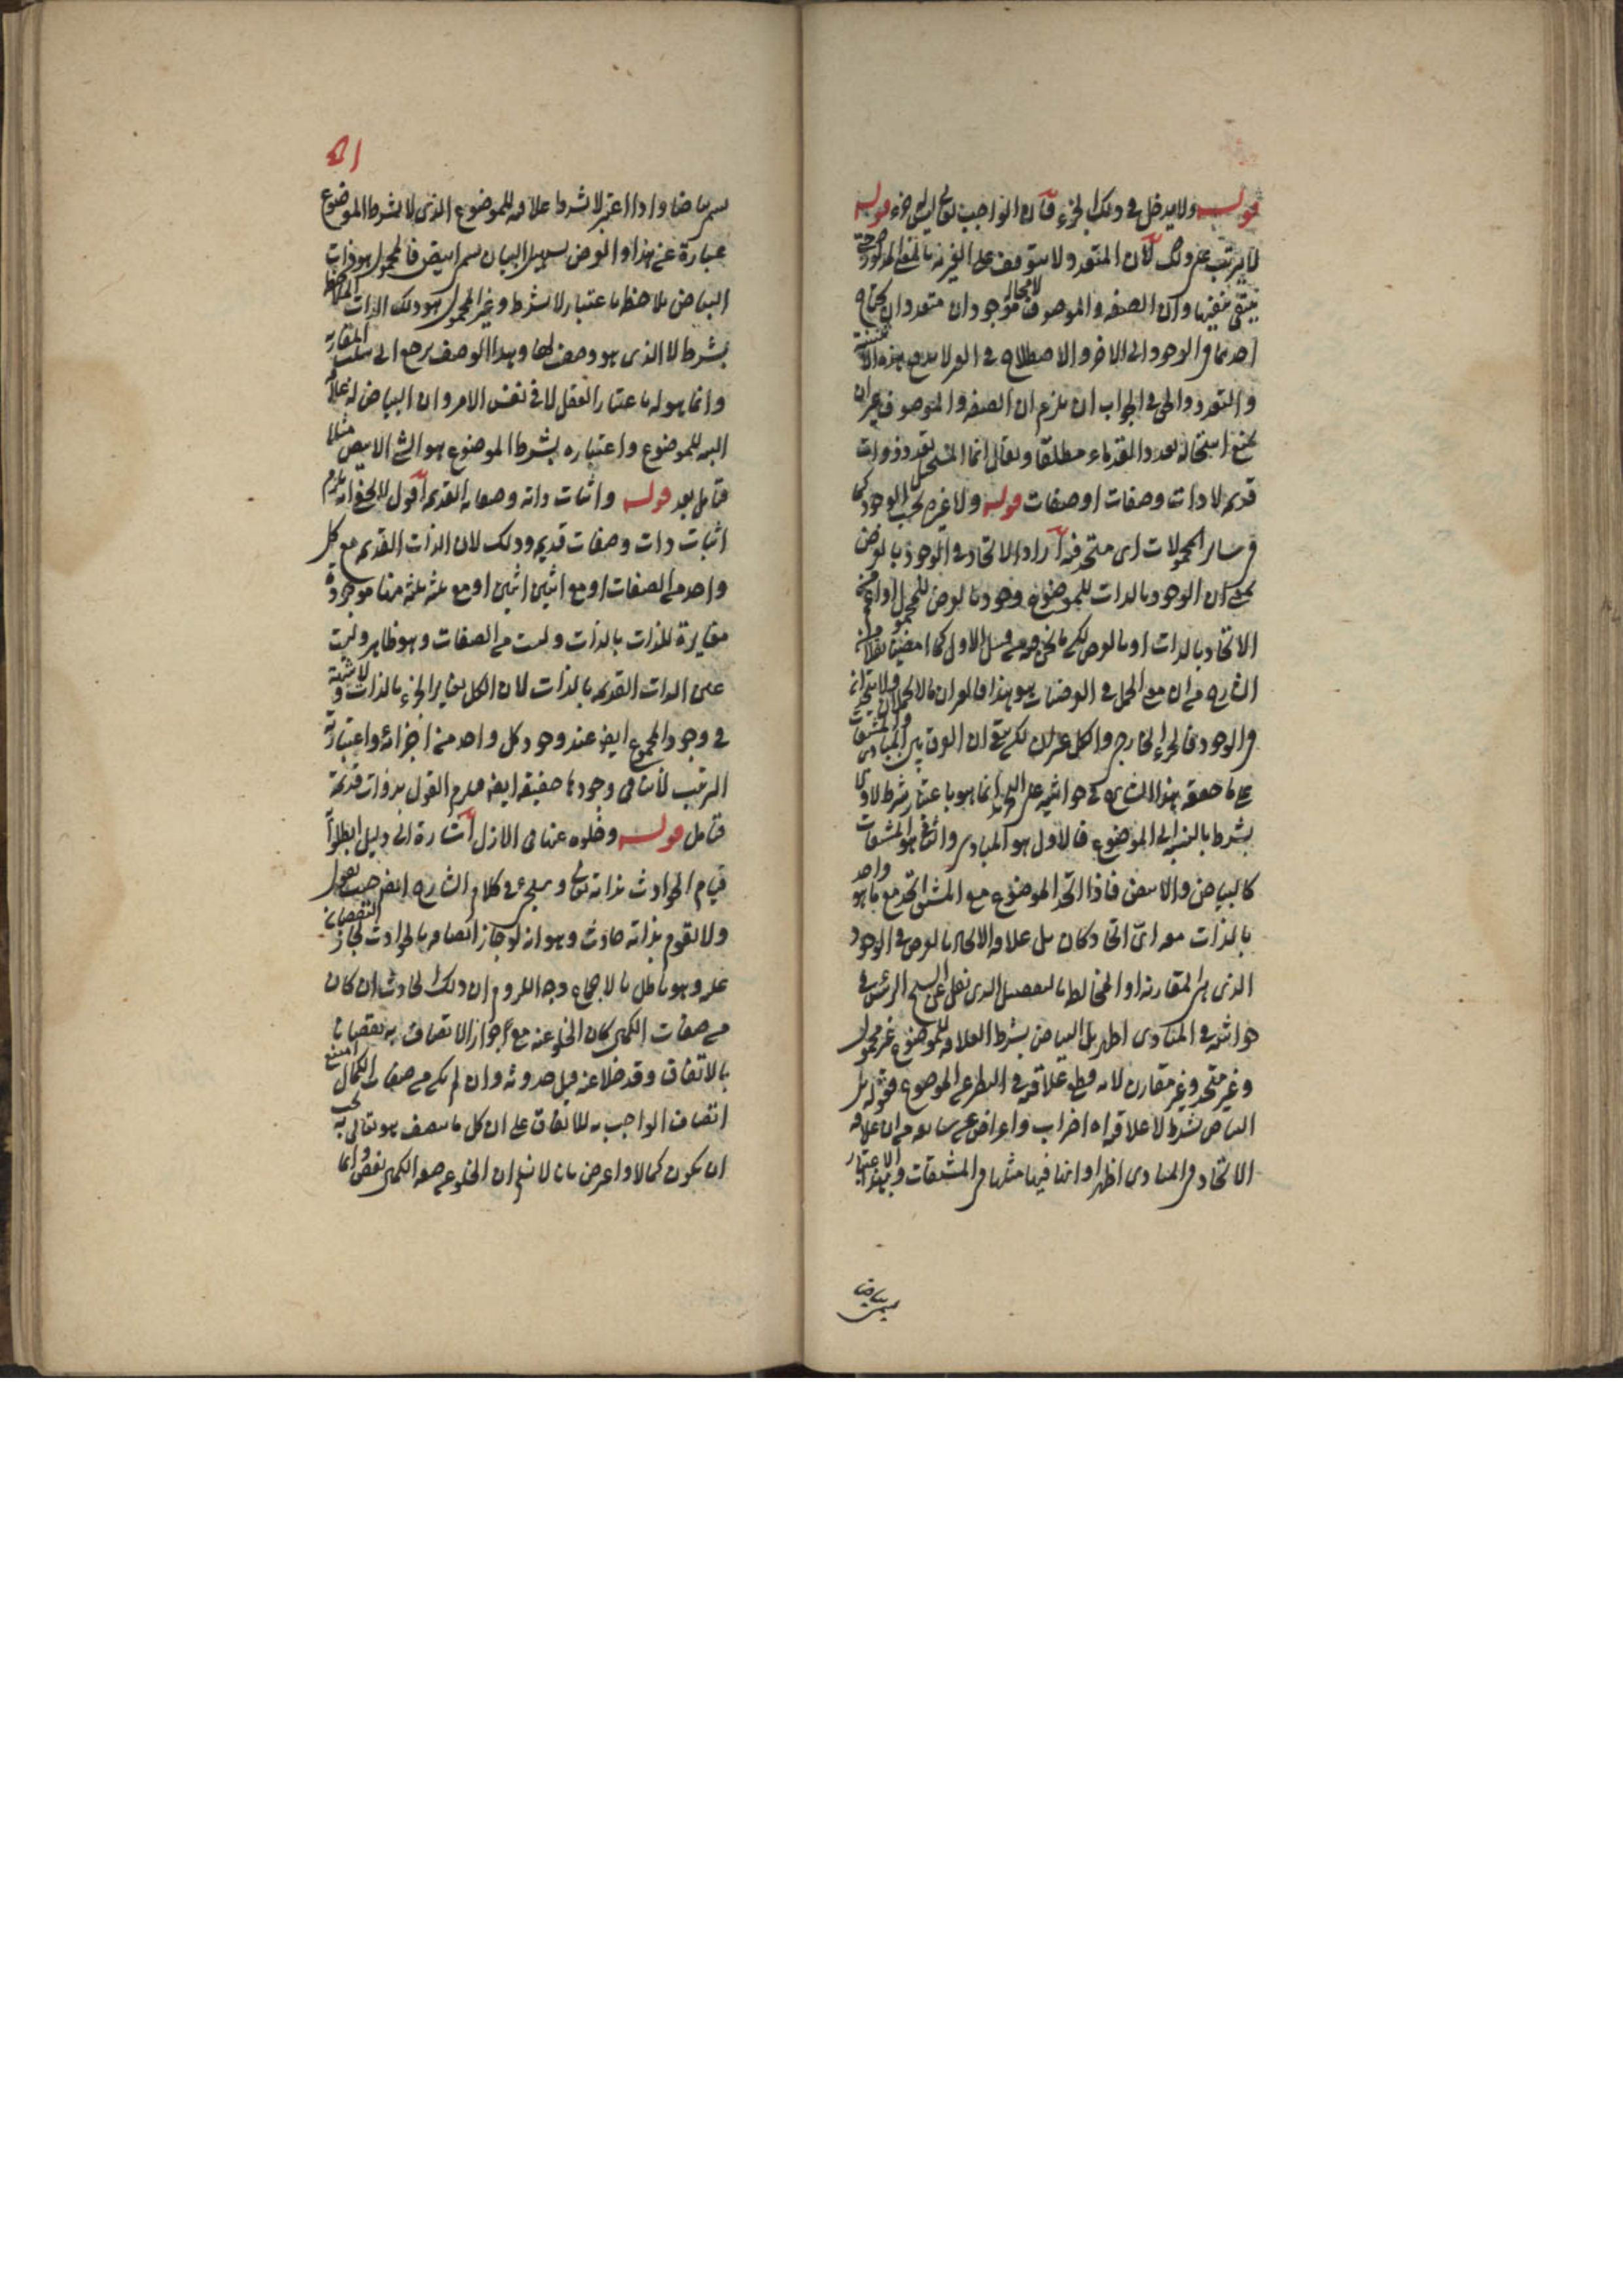 قوله ولا يدخل في ذلك الجزء فان الواجب تعالى ليس جزء قوله
لان المتعدد لا يتوقف على الغيرية بالمعنى المذكور
وان الصفة والموصوف لا محالة موجودان متعددان يحتاج
احدهما في الوجود الى الاخر والاصطلاح في القول لا يدفع هذه
والتعدد والحق في الجواب ان يلزم ان الصفة والموصوف غيران
يمنع استحالة تعدد القدماء مطلقا ويقال انما المستحيل تعدد ذوات
قديمة لا ذات وصفات او صفات قوله ولا غيره بحسب الوجود كما
في سائر المحمولات اى متحد فيه اراد الاتحاد في الوجود بالعرض
بمعنى ان الوجود بالذات للموضوع وجود بالعرض للمحمول
الاتحاد بالذات او بالعرض
الشارح من ان مع الحمل في العرضيات هو هذا
والوجود فالجزء الخارجى والكل غيران لكن بقى ان الفرق بين المبادى والمشتقات
على ما حققه هذا الشارح في حواشيه على التجريد انما هو باعتبار بشرط لا ولا
بشرط بالنسبة الى الموضوع فالاول هو المبادى والثانى هو المشتقات
كالبياض والابيض فاذا اتحد الموضوع مع المشتق اتحد مع ما هو واحد
بالذات معه اى اتحاد كان بل علاقة الاتحاد بالعرض في الوجود
الذى هو المقارنة او المخالطة بالتفصيل الذى نقل عن الشيخ الرئيس في
حواشيه في المبادى اظهر بل البياض بشرط العلاقة للموضوع غير محمول
وغير متحد وغير مقارن لانه قطع علاقته في النظر عن الموضوع فقوله بل
البياض بشرط لا علاقة له اضراب واعراض عن سابقه من ان علاقة
الاتحاد في المبادى اظهر او انها فيها مثلها في المشتقات وبهذا الاعتبار
يسمى بياضا
٤١
يسمى بياضا واذا اعتبر لا بشرط علاقة للموضوع الذى لا بشرط الموضوع
عبارة عن هذا والعرض بسبيل البيان يسمى ابيض فالمحمول هو ذات
البياض ملاحظا باعتبار لا بشرط وغير المحمول هو ذلك الذات الملاحظ
بشرط لا الذى هو وصف لها وهذا الوصف يرجع الى سلب المقارنة
وانما هو له باعتبار العقل لا في نفس الامر وان البياض له علاقة
البتة للموضوع واعتباره بشرط الموضوع هو الشئ الابيض مثلا
فتامل بعد قوله واثبات ذاته وصفاته القديمة اقول لا يخفى انه يلزم
اثبات ذات وصفات قديمة وذلك لان الذات القديم مع كل
واحد من الصفات او مع اثنين اثنين او مع ثلثة ثلثة منها موجودة
مغايرة للذات بالذات وليست من الصفات وهو ظاهر وليست
عين الذات القديمة بالذات لان الكل يغاير الجزء بالذات ولا شبهة
في وجود المجموع ايض عند وجود كل واحد من اجزائه واعتبارية
الترتيب لا ينافى وجودها حقيقة ايضا فيلزم القول بذوات قديمة
فتامل قوله وخلوه عنها في الازل اشارة الى دليل ابطلوا
قيام الحوادث بذاته تعالى وسيجئ في كلام الشارح ايض حيث يقول
ولا يقوم بذاته حادث وهو انه لو جاز اتصافه بالحوادث لجاز النقصان
عليه وهو باطل بالاجماع وجه اللزوم ان ذلك الحادث ان كان
من صفات الكمال كان الخلو عنه مع جواز الاتصاف به نقصانا
بالاتفاق وقد خلا عنه قبل حدوثه وان لم يكن من صفات الكمال امتنع
اتصاف الواجب به للاتفاق على ان كل ما يتصف هو تعالى به يجب
ان يكون كمالا واعرض بانا لا نسلم ان الخلو عن صفة الكمال نقص وانما